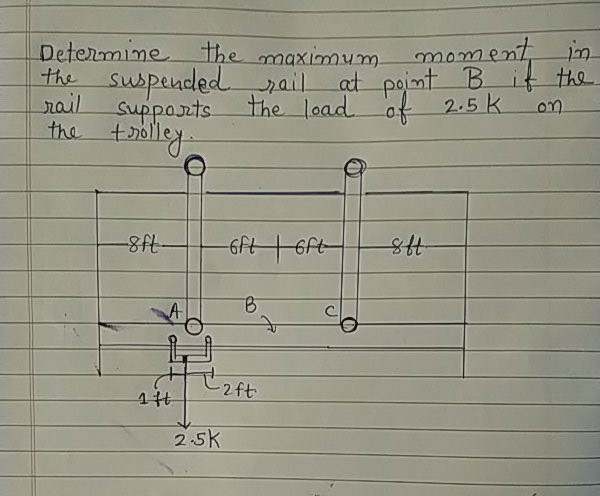 Determine the maximum moment in
the suspended rail at point B if the
rail supports the load of 2.5K on
the trolley.
8ft 6ft 6ft 8ft
A B C
1ft 2ft
2.5K